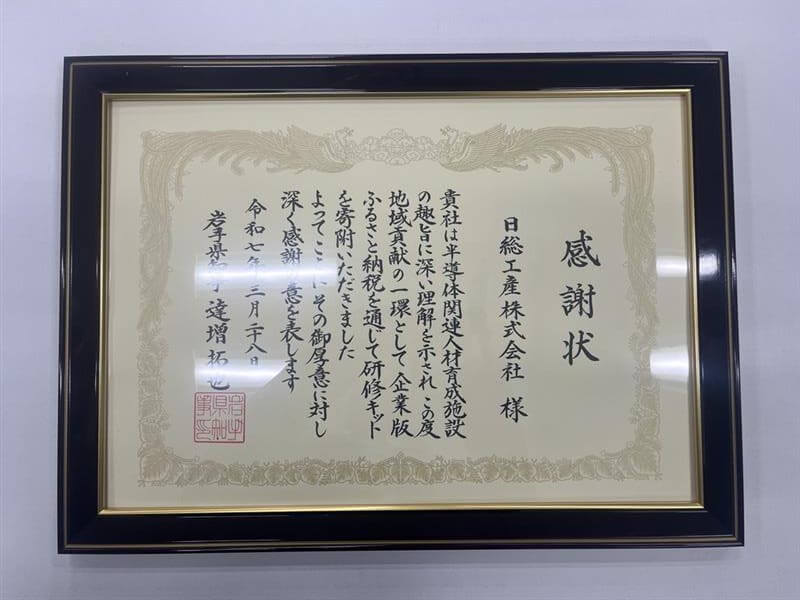 感謝状
日総工産株式会社 様
貴社は半導体関連人材育成施設
の趣旨に深い理解を示され この度
地域貢献の一環として企業版
ふるさと納税を通じて研修キット
を寄附いただきました
よってここにその御厚意に対し
深く感謝の意を表します
令和七年三月二十八日
岩手県知事 達増拓也
岩手県知事之印